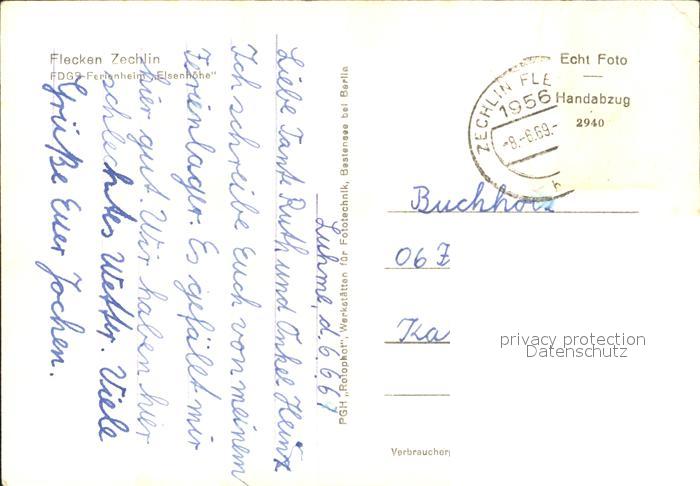 Flecken Zechlin
FDGB-Ferienheim „Elsenhöhe"
Luhme, d. 6.6.67
Liebe Tante Ruth und Onkel Heinz
Ich schreibe Euch von meinem
Ferienlager. Es gefällt mir
hier gut. Wir haben hier
schlechtes Wetter. Viele
Grüße Euer Jochen.
PGH „Rotophot", Werkstätten für Fototechnik, Bestensee bei Berlin
ZECHLIN FLE
1956
-8.-6.69.-
Echt Foto
Handabzug
2940
Buchholz
06 Z
Ka
privacy protection
Datenschutz
Verbraucherp